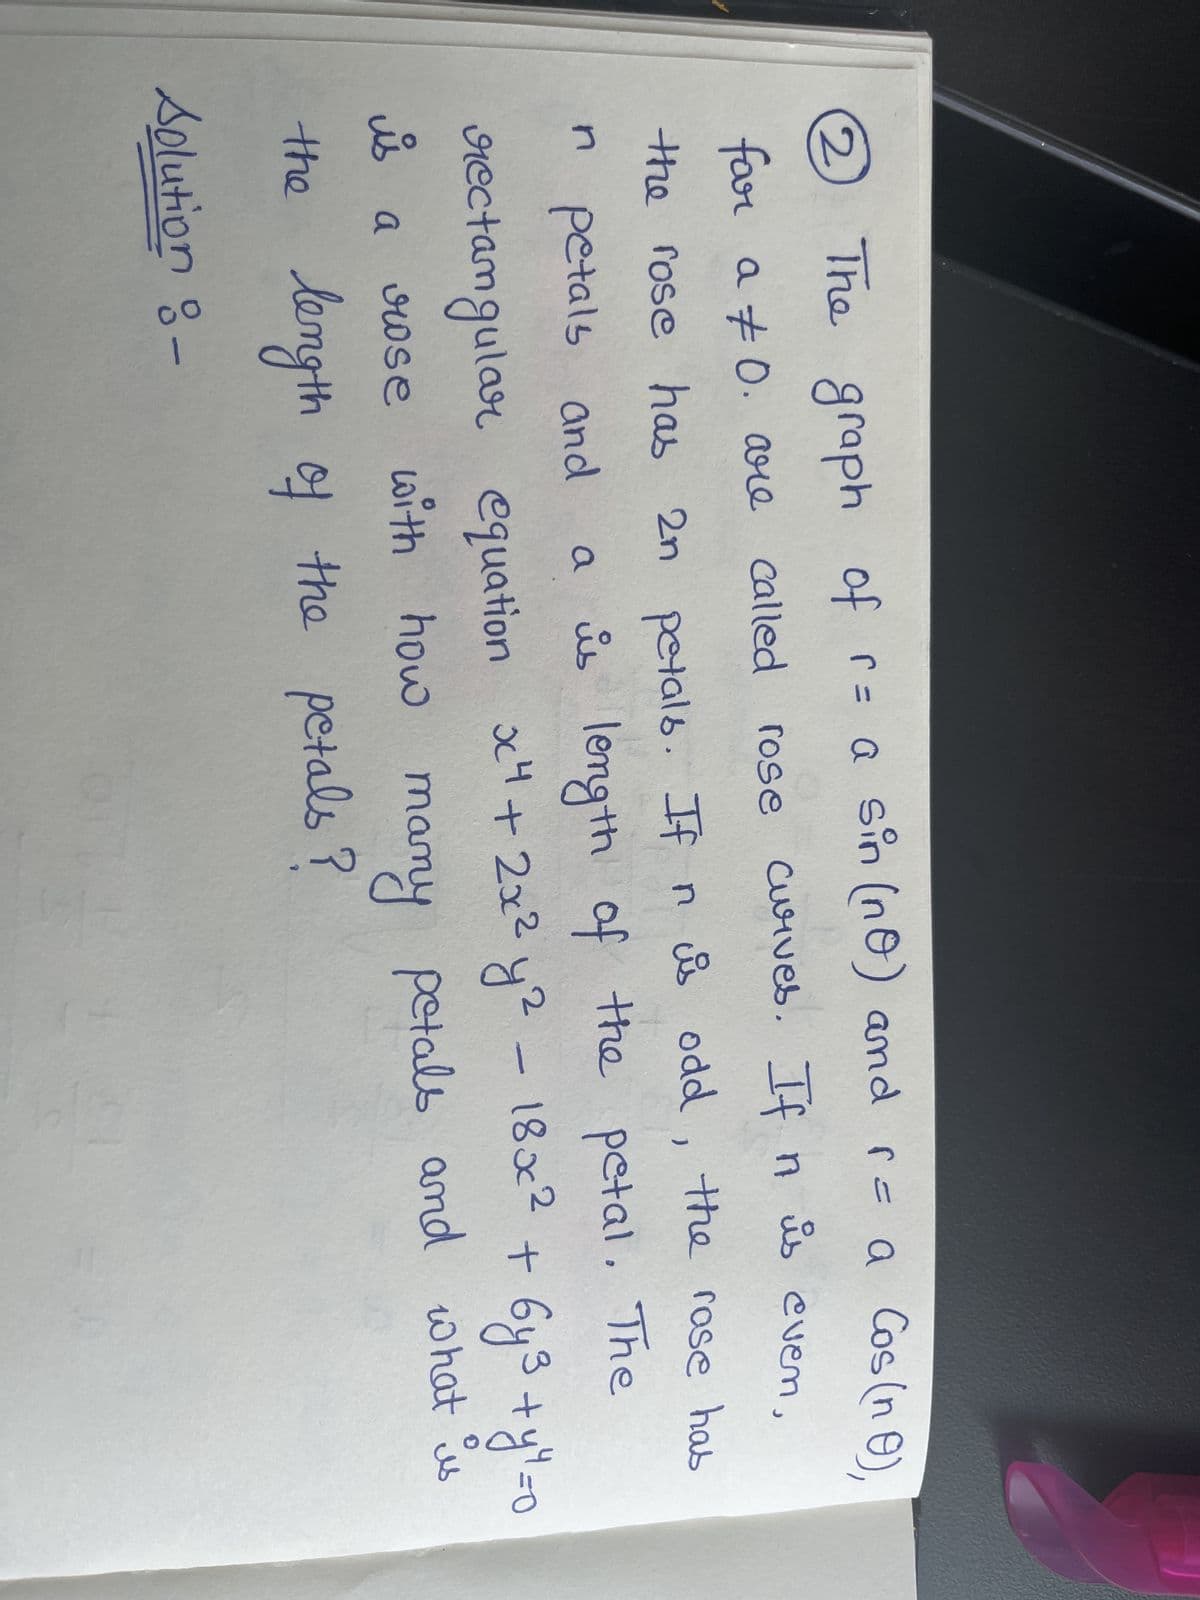 ② The graph of r = a sin(nθ) and r = a Cos(nθ),
for a ≠ 0. are called rose curves. If n is even,
the rose has 2n petals. If n is odd, the rose has
n petals and a is length of the petal. The
rectangular equation x⁴ + 2x²y² - 18x² + 6y³ + y⁴ = 0
is a rose with how many petals and what is
the length of the petals?
Solution :-